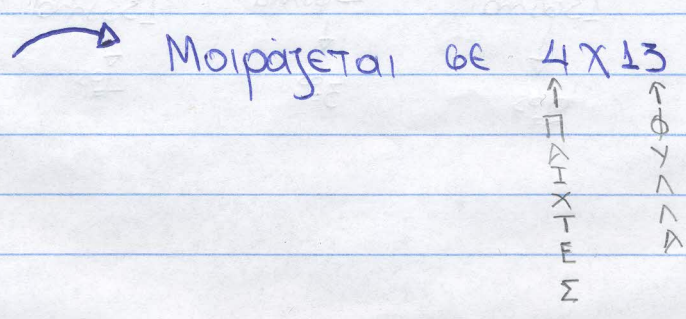 Μοιράζεται σε 4 Χ 13
ΠΑΙΧΤΕΣ
ΦΥΛΛΑ